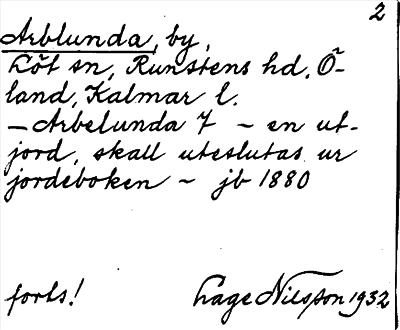 2
Arblunda, by,
Löt sn, Runstens hd, Ö-
land, Kalmar l.
– Arbelunda 7 – en ut-
jord, skall uteslutas ur
jordeboken – jb 1880
forts! Lage Nilsson 1932